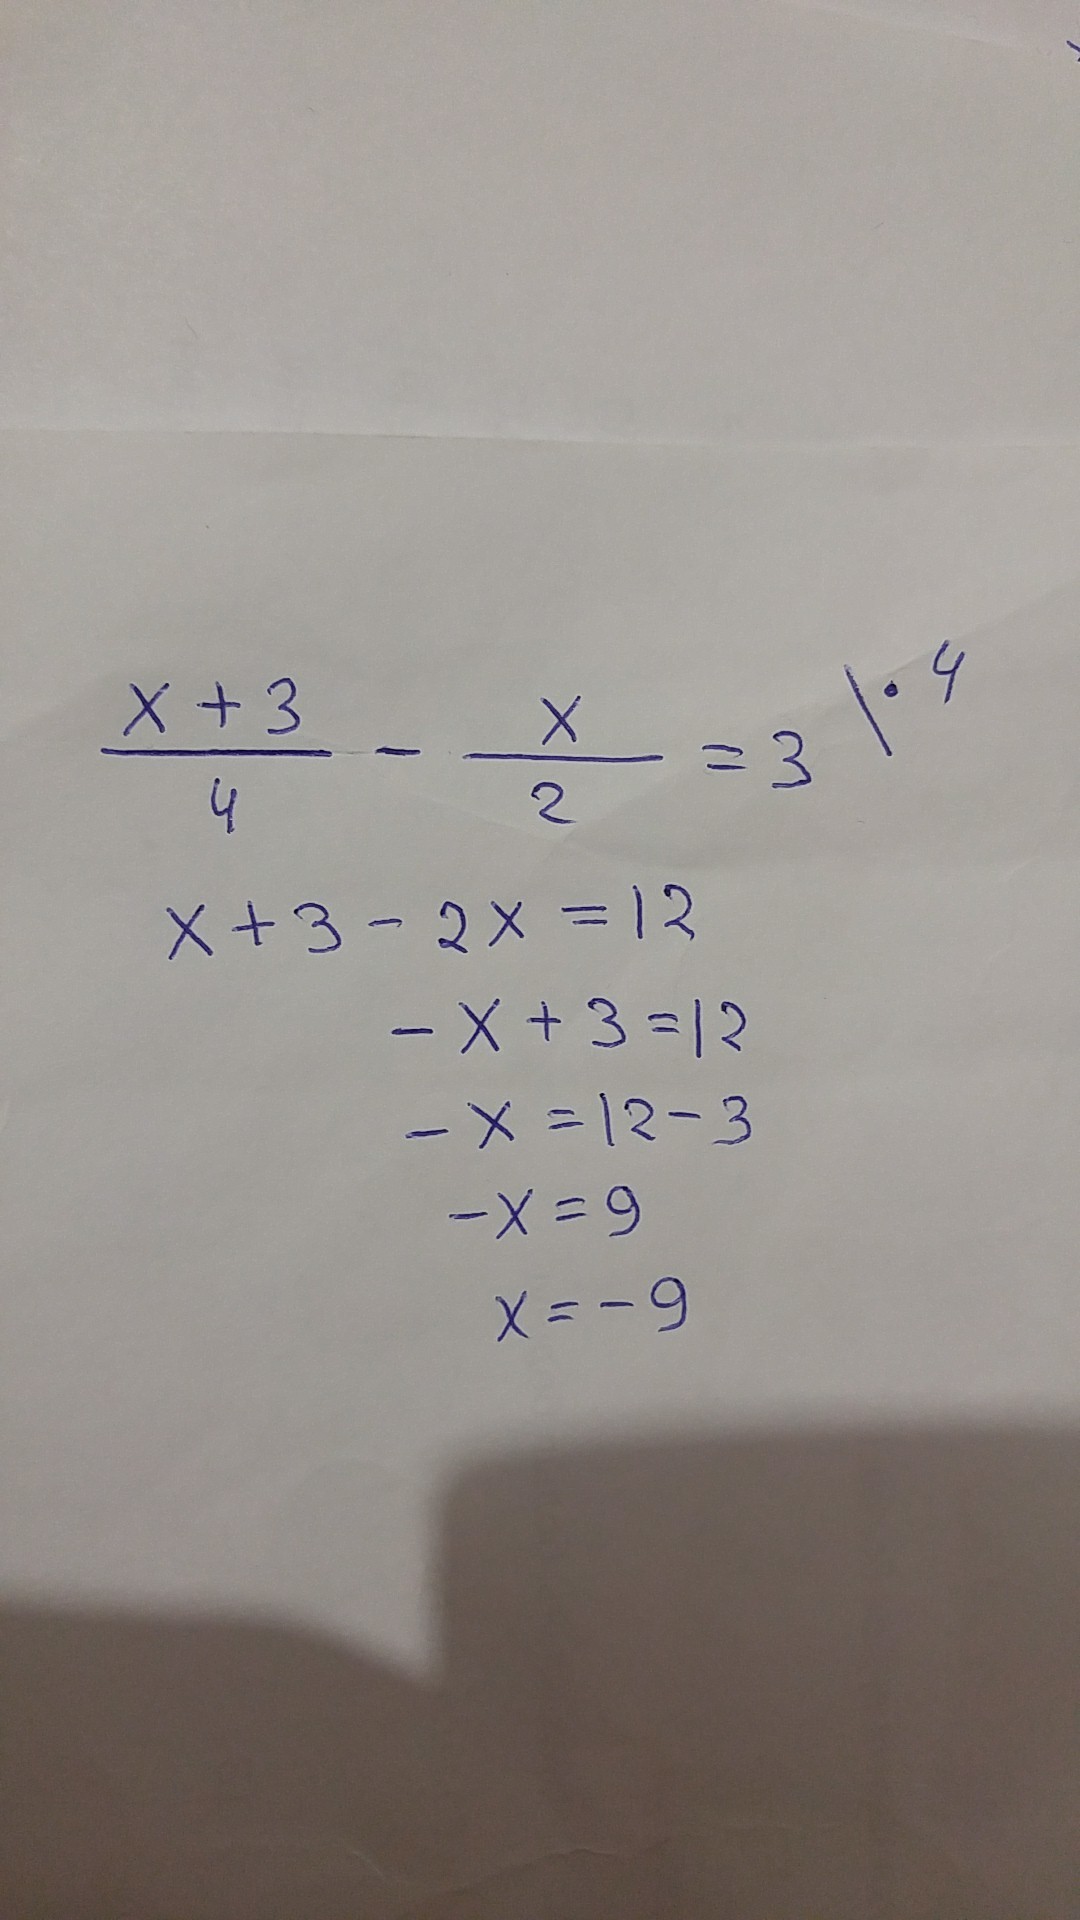 x + 3 / 4 - x / 2 = 3 \ · 4
x + 3 - 2x = 12
- x + 3 = 12
- x = 12 - 3
- x = 9
x = - 9